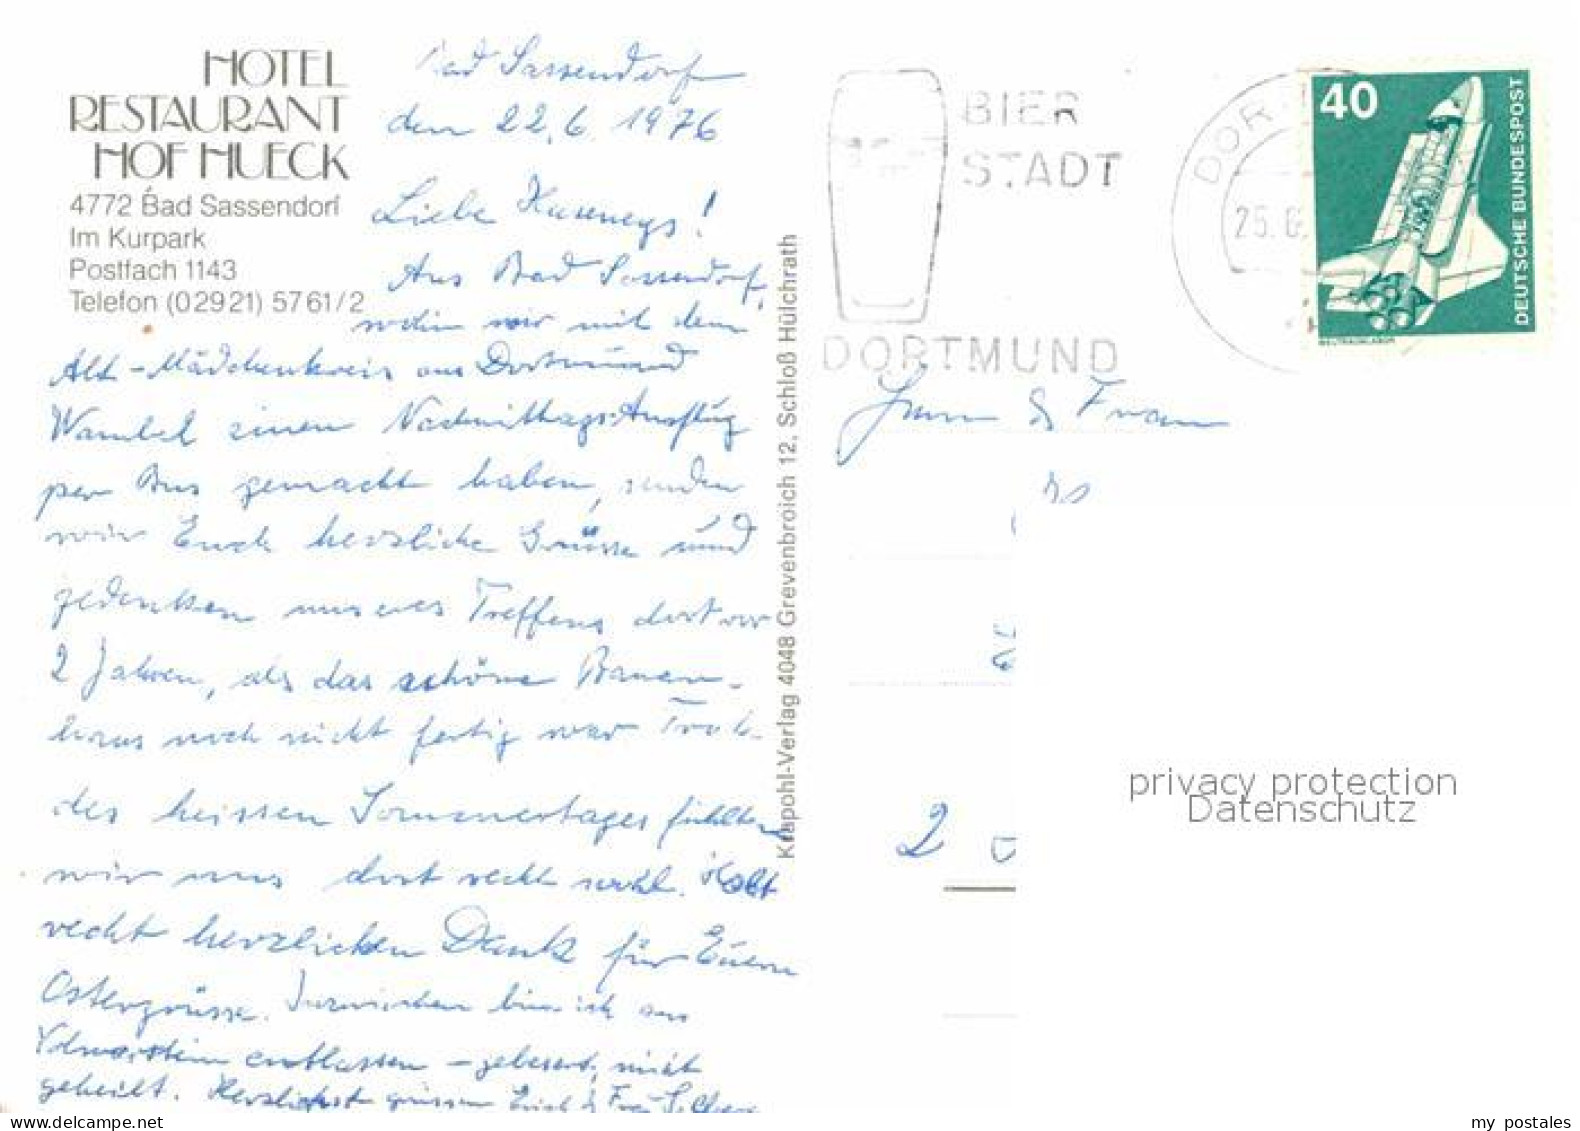 HOTEL
RESTAURANT
HOF HUECK
4772 Bad Sassendorf
Im Kurpark
Postfach 1143
Telefon (02921) 5761/2
Bad Sassendorf
den 22.6.1976
Liebe !
Aus Bad Sassendorf,
wohin wir mit dem
Alt-Mädchenkreis aus Dortmund
Wambel einen Nachmittags-Ausflug
per Bus gemacht haben, senden
wir Euch herzliche Grüsse und
gedenken unseres Treffens dort vor
2 Jahren, als das schöne Bauern-
haus noch nicht fertig war Trotz
des heissen Sommertages fühlten
wir uns dort recht wohl. Habt
recht herzlichen Dank für Eure
Ostergrüsse. Inzwischen bin ich aus
Volmarstein entlassen - gebessert, nicht
geheilt. Herzlichst grüssen Erich & Frau
Krapohl-Verlag 4048 Grevenbroich 12, Schloß Hülchrath
BIER
STADT
DORTMUND
DOR
25.6.
40
DEUTSCHE BUNDESPOST
WELTRAUMLABOR
Herrn & Frau
2
privacy protection
Datenschutz
my postales
www.delcampe.net